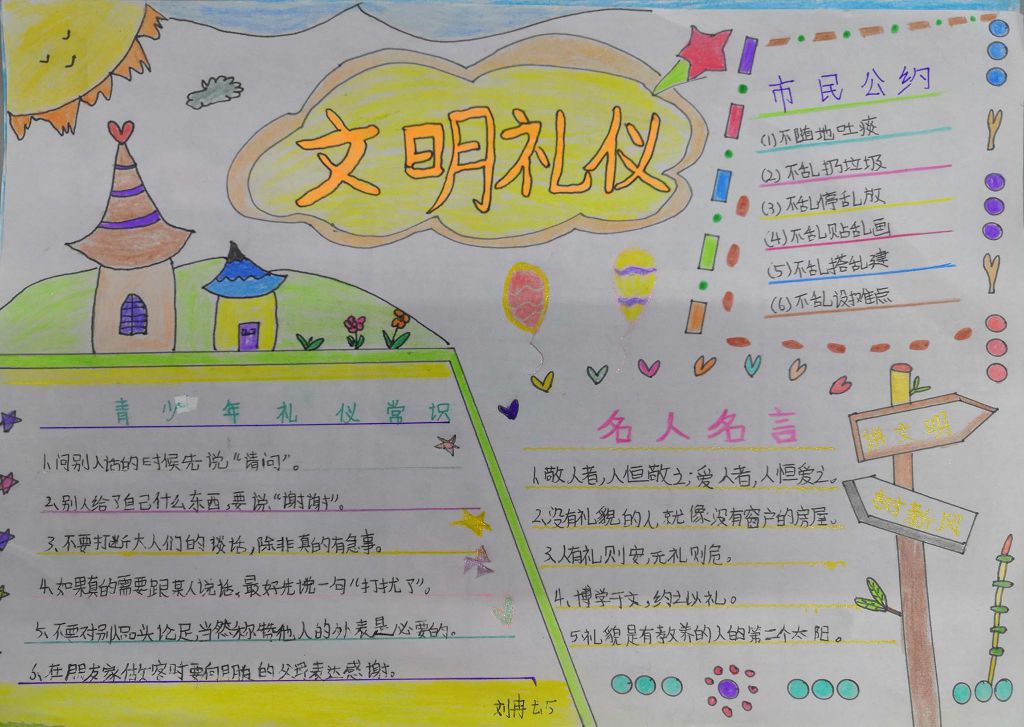 文明礼仪
市民公约
(1)不随地吐痰
(2)不乱扔垃圾
(3)不乱停乱放
(4)不乱贴乱画
(5)不乱搭乱建
(6)不乱设摊点
青少年礼仪常识
1、问别人话的时候先说“请问”。
2、别人给了自己什么东西,要说“谢谢”。
3、不要打断大人们的谈话,除非真的有急事。
4、如果真的需要跟某人说话,最好先说一句“打扰了”。
5、不要对别人品头论足,当然称赞他人的外表是必要的。
6、在朋友家做客时要向朋友的父母表达感谢。
名人名言
1、敬人者,人恒敬之;爱人者,人恒爱之。
2、没有礼貌的人就像没有窗户的房屋。
3、人有礼则安,无礼则危。
4、博学于文,约之以礼。
5、礼貌是有教养的人的第二个太阳。
讲文明
树新风
刘冉 5